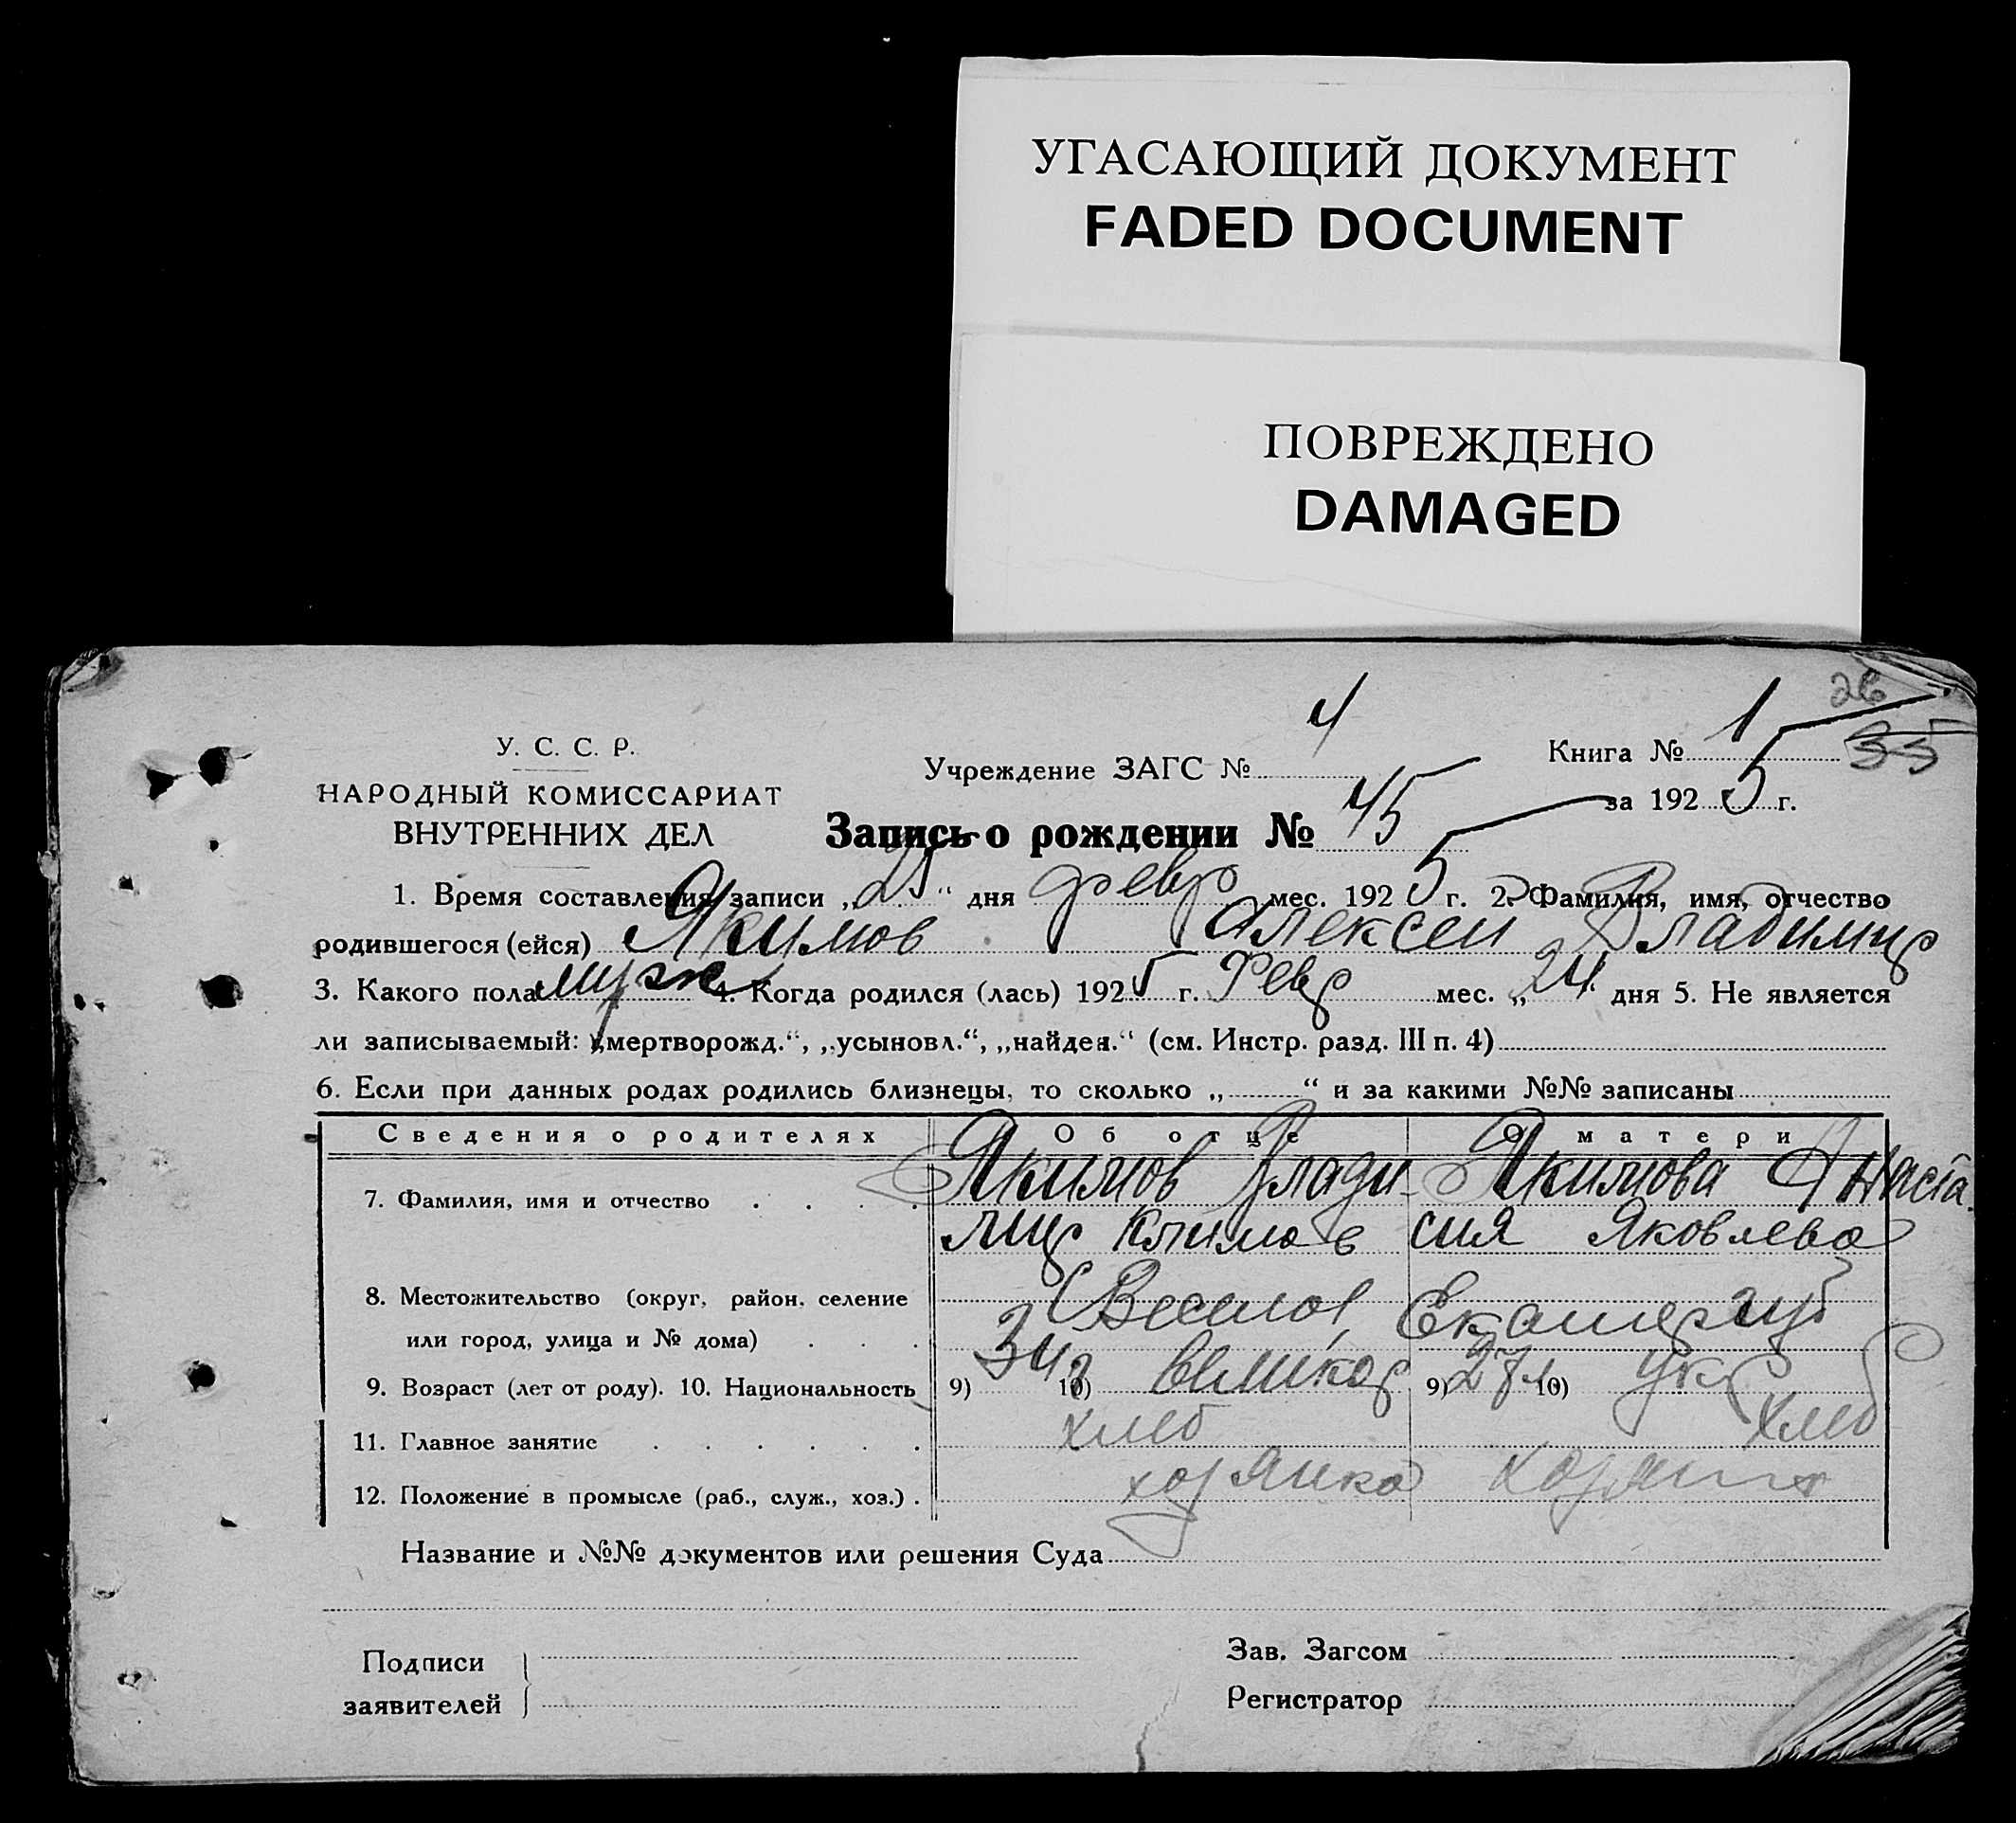 УГАСАЮЩИЙ ДОКУМЕНТ
FADED DOCUMENT
ПОВРЕЖДЕНО
DAMAGED
26
35
У. С. С. Р.
НАРОДНЫЙ КОМИССАРИАТ
ВНУТРЕННИХ ДЕЛ
Учреждение ЗАГС № 4
Книга № 1
за 1925 г.
Запись о рождении № 45
1. Время составления записи „25“ дня февр мес. 1925 г. 2. Фамилия, имя, отчество
родившегося (ейся) Якимов Алексеи Владимир
3. Какого пола муж 4. Когда родился (лась) 1925 г. Февр мес. „24“ дня 5. Не является
ли записываемый: „мертворожд.“, „усыновл.“, „найден.“ (см. Инстр. разд. III п. 4)
6. Если при данных родах родились близнецы, то сколько „ “ и за какими №№ записаны
Сведения о родителях Об отце О матери
7. Фамилия, имя и отчество Якимов Влади- Якимова Анаста-
мир Климов сия Яковлева
8. Местожительство (округ, район, селение
или город, улица и № дома) Веселое, Екатер губ
9. Возраст (лет от роду). 10. Национальность 9) 34 10) великор 9) 27 л. 10) Укр
11. Главное занятие хлеб хлеб
12. Положение в промысле (раб., служ., хоз.)
Название и №№ документов или решения Суда
Подписи
заявителей
Зав. Загсом
Регистратор